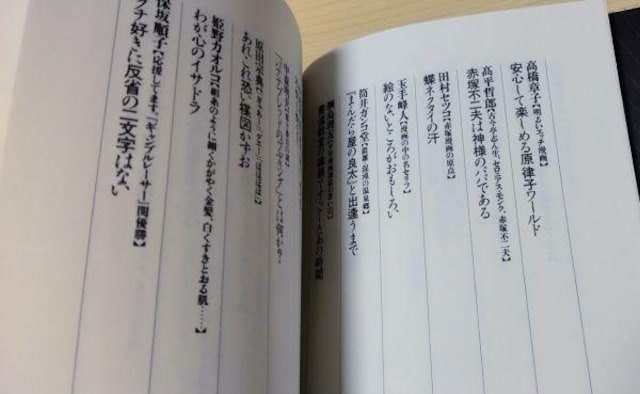 高橋章子【明るいエッチ漫画】
安心して楽しめる原律子ワールド
高平哲郎【古今亭志ん生、セロニアス・モンク、赤塚不二夫】
赤塚不二夫は神様のパパである
田村セツコ【赤塚漫画の原点】
蝶ネクタイの汗
玉手峰人【漫画の中の名セリフ】
絵のないところがおもしろい
筒井ガンコ堂
『まんだら屋の良太』と出逢うまで
の時間
とは何か?
原田宗典
あれこれ恐い構図かずお
姫野カオルコ【絹糸のように細くかがやく金髪、白くすきとおる肌……】
わが心のイサドラ
保坂順子【応援してます、『ギャンブルレーサー』関優勝】
チ好きに反省の二文字はない